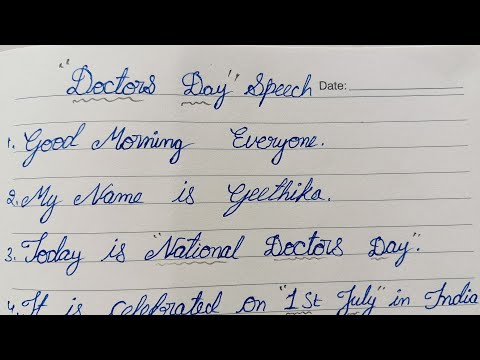 "Doctors Day" Speech Date:
1. Good Morning Everyone.
2. My Name is Geethika.
3. Today is "National Doctors Day".
4. It is celebrated on "1st July" in India